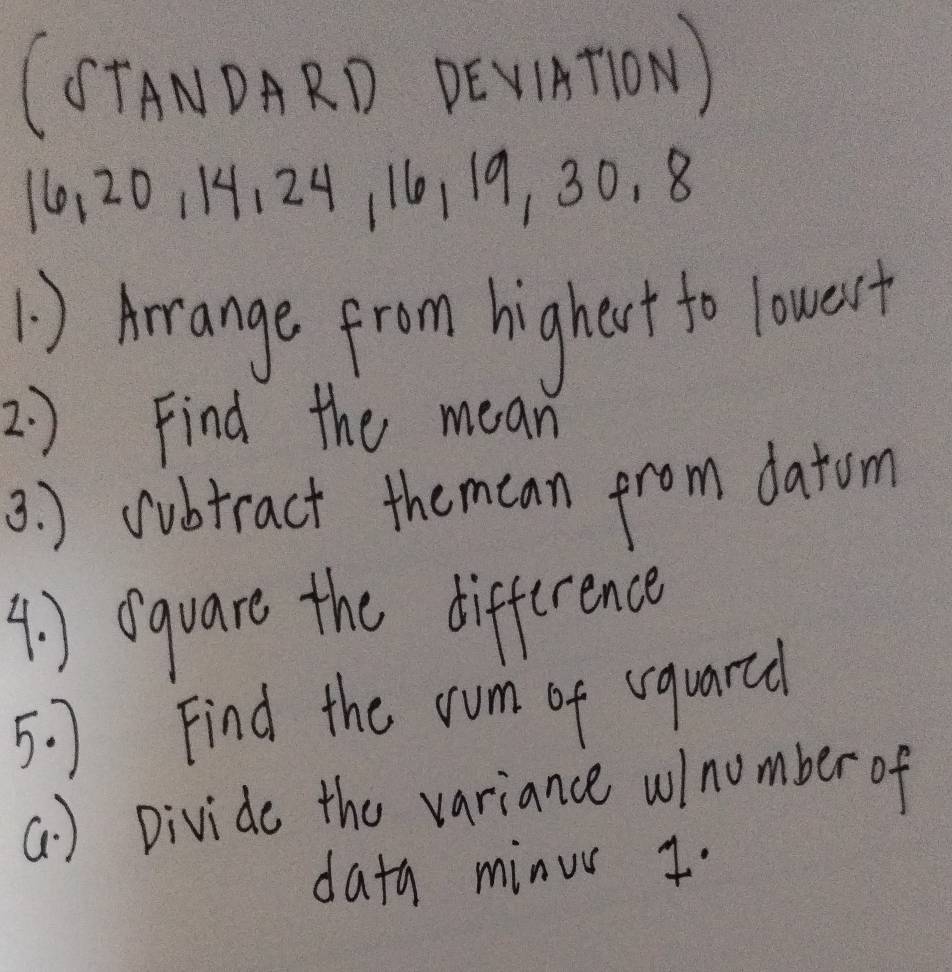 (STANDARD DEVIATION)
16, 20, 14, 24, 16, 19, 30, 8
1.) Arrange from highest to lowest
2.) Find the mean
3.) subtract the mean from datum
4.) square the difference
5.) Find the sum of squared
6.) Divide the variance w/ number of
data minus 1.